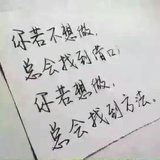 你若不想做,
总会找到借口;
你若想做,
总会找到方法.